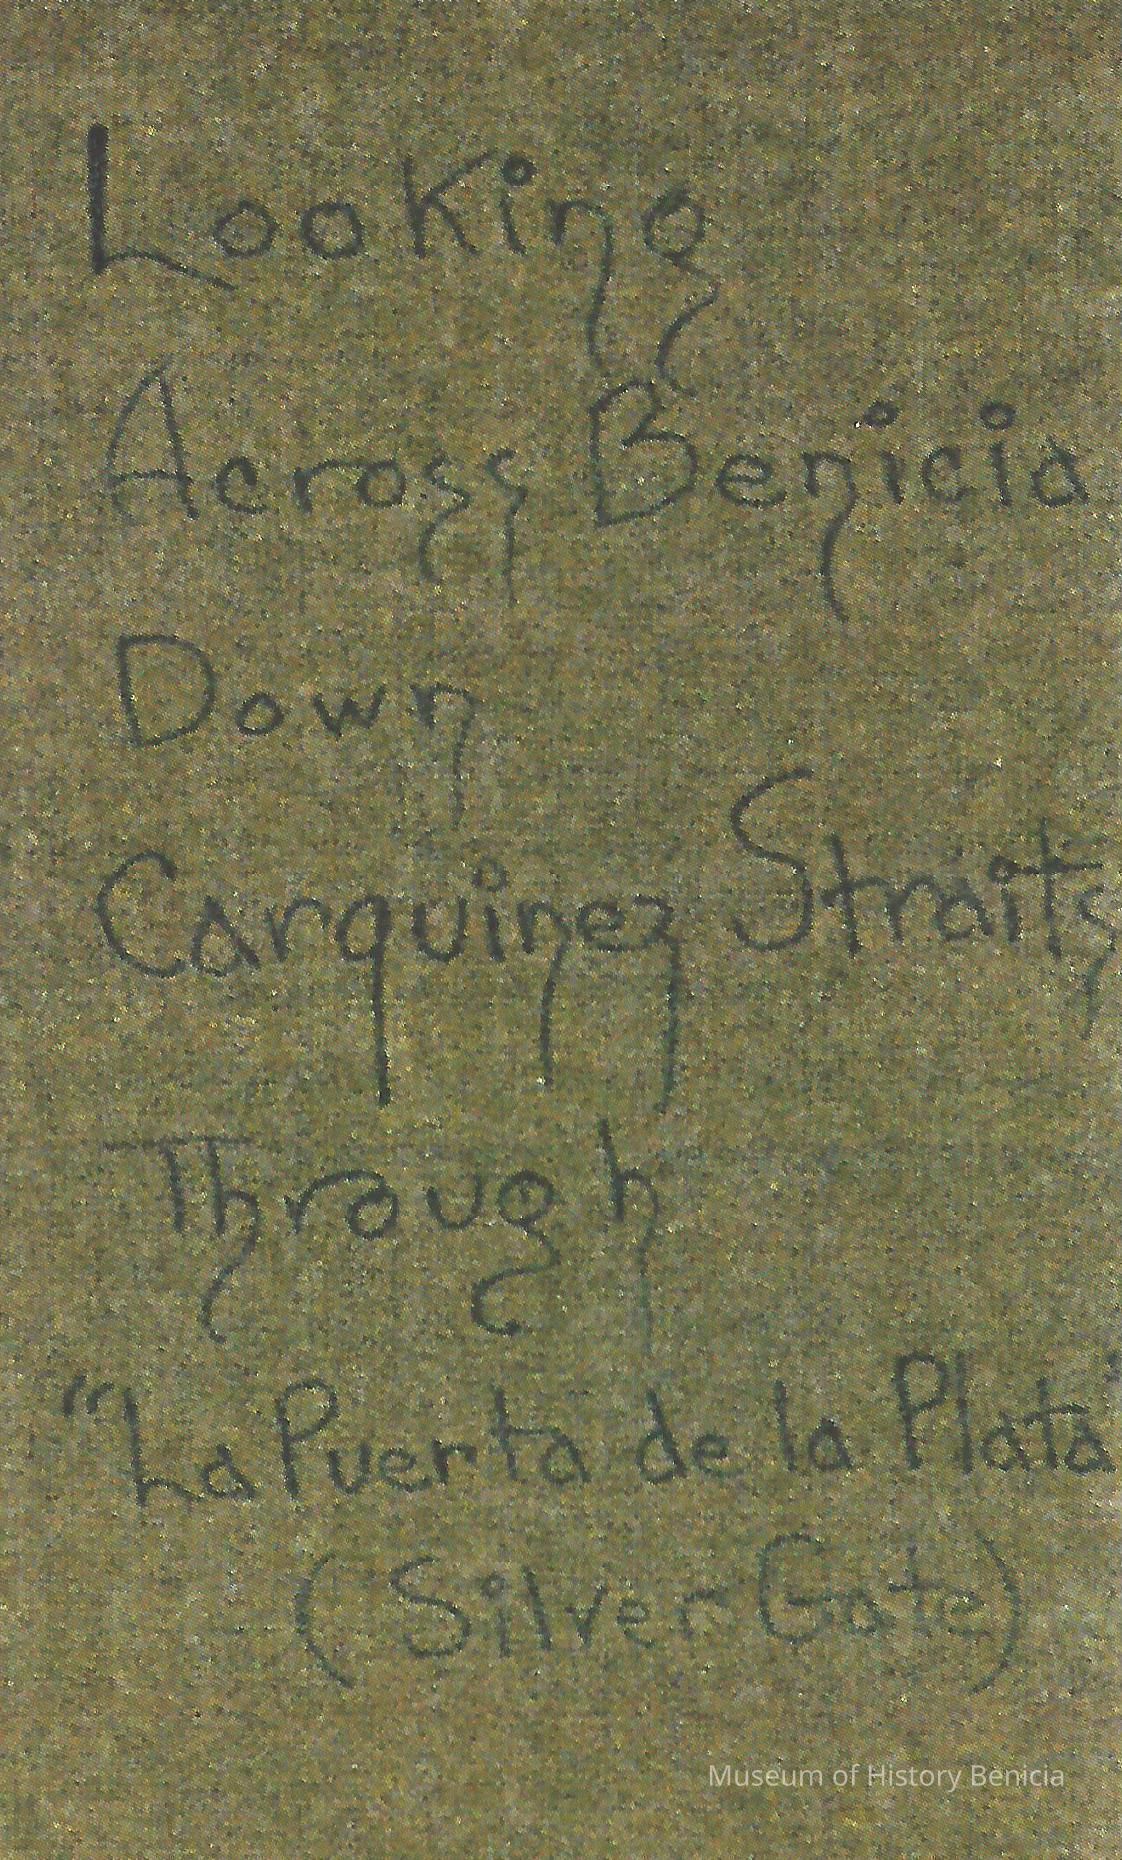 Looking
Across Benicia
Down
Carquinez Straits
Through
"La Puerta de la Plata"
(Silver Gate)
Museum of History Benicia